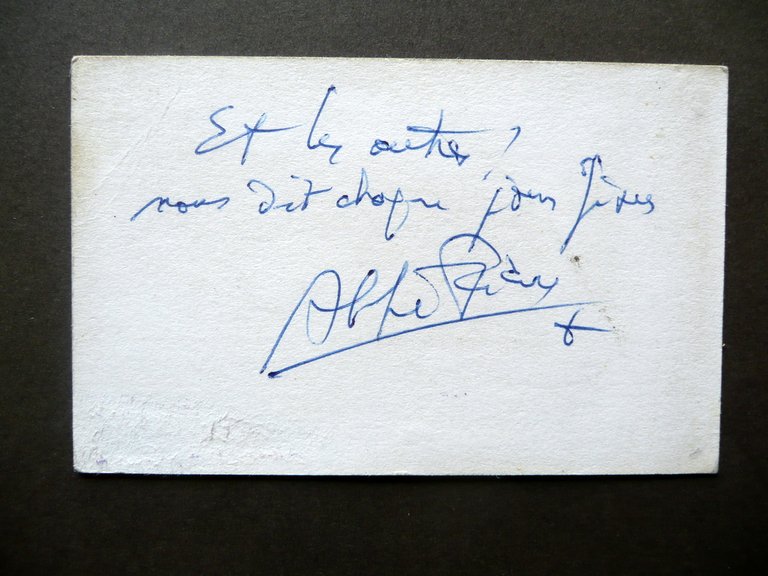 Et les autres ?
nous dit chaque jour Jésus
Abbé Pierre